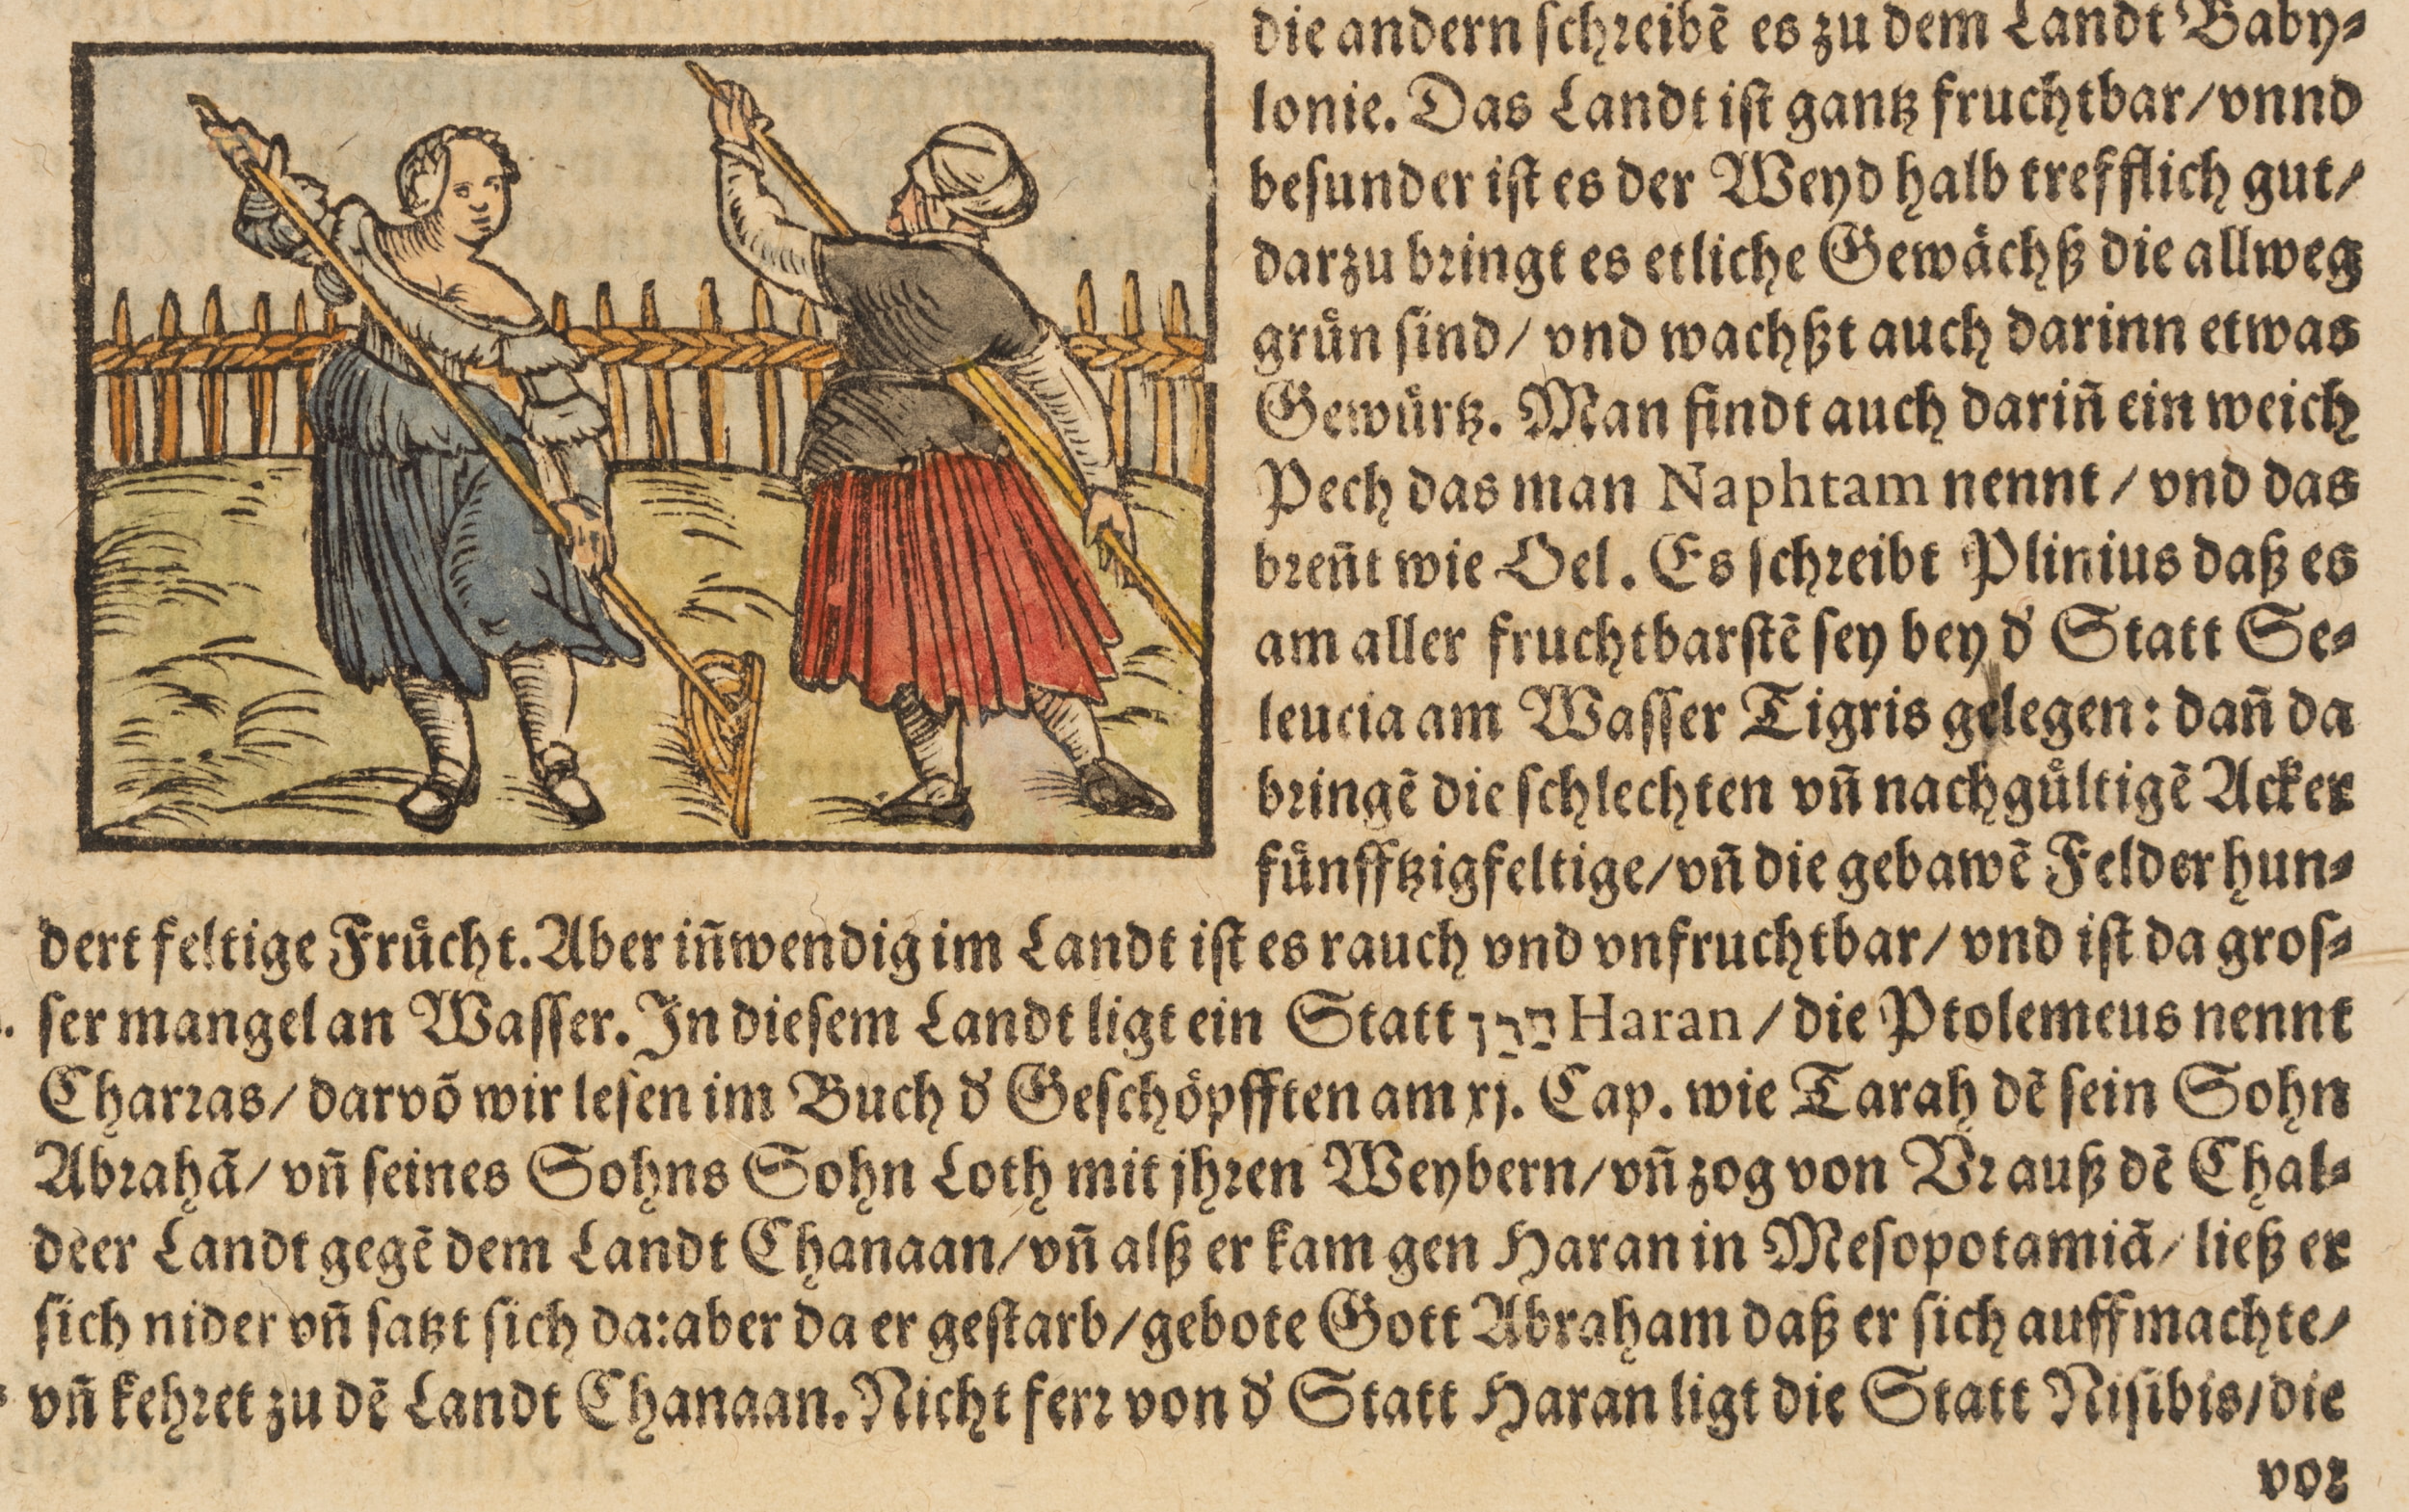 die andern schreibẽ es zu dem Landt Baby⸗
lonie. Das Landt ist gantz fruchtbar/vnnd
besunder ist es der Weyd halb trefflich gut/
darzu bringt es etliche Gewaͤchß die allweg
gruͤn sind/ vnd wachßt auch darinn etwas
Gewuͤrtz. Man findt auch dariñ ein weich
Pech das man Naphtam nennt / vnd das
breñt wie Oel. Es schreibt Plinius daß es
am aller fruchtbarstẽ sey bey d' Statt Se⸗
leucia am Wasser Tigris gelegen: dañ da
bringẽ die schlechten vñ nachguͤltigẽ Acker
fuͤnfftzigfeltige/vñ die gebawẽ Felder hun⸗
dert feltige Fruͤcht. Aber iñwendig im Landt ist es rauch vnd vnfruchtbar/ vnd ist da gros⸗
ser mangel an Wasser. In diesem Landt ligt ein Statt חרן Haran / die Ptolemeus nennt
Charras/ darvõ wir lesen im Buch d' Geschoͤpfften am xj. Cap. wie Tarah dẽ sein Sohn
Abrahã/ vñ seines Sohns Sohn Loth mit jhren Weybern/vñ zog von Vr auß dẽ Chal⸗
deer Landt gegẽ dem Landt Chanaan/vñ alß er kam gen Haran in Mesopotamiã/ ließ er
sich nider vñ satzt sich da: aber da er gestarb/gebote Gott Abraham daß er sich auffmachte/
vñ kehret zu dẽ Landt Chanaan. Nicht ferr von d' Statt Haran ligt die Statt Nisibis/die
vor